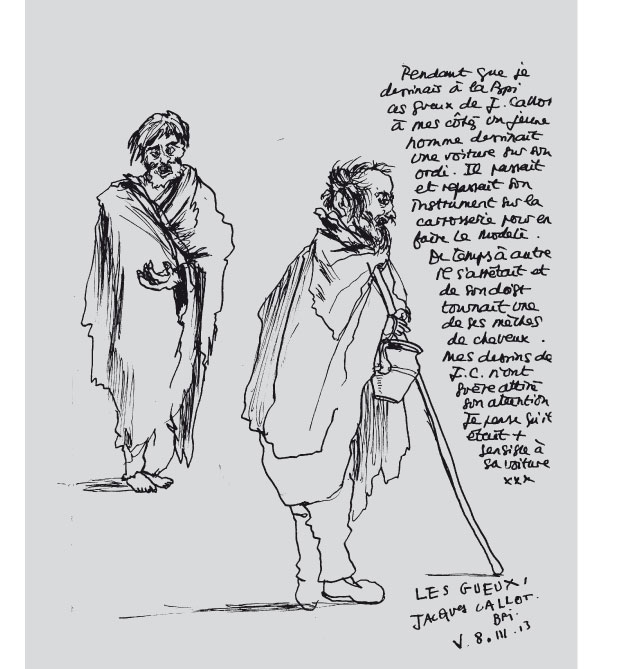 Pendant que je
dessinais à la Bpi
ces gueux de J. Callot
à mes côtés un jeune
homme dessinait
une voiture sur son
ordi. Il passait
et repassait son
instrument sur la
carrosserie pour en
faire le modelé.
De temps à autre
il s'arrêtait et
de son doigt
tournait une
de ses mèches
de cheveux.
Mes dessins de
J.C. n'ont
guère attiré
son attention
Je pense qu'il
était +
sensible à
sa voiture
xxx
LES GUEUX,
JACQUES CALLOT.
BPI.
V. 8. III. 13